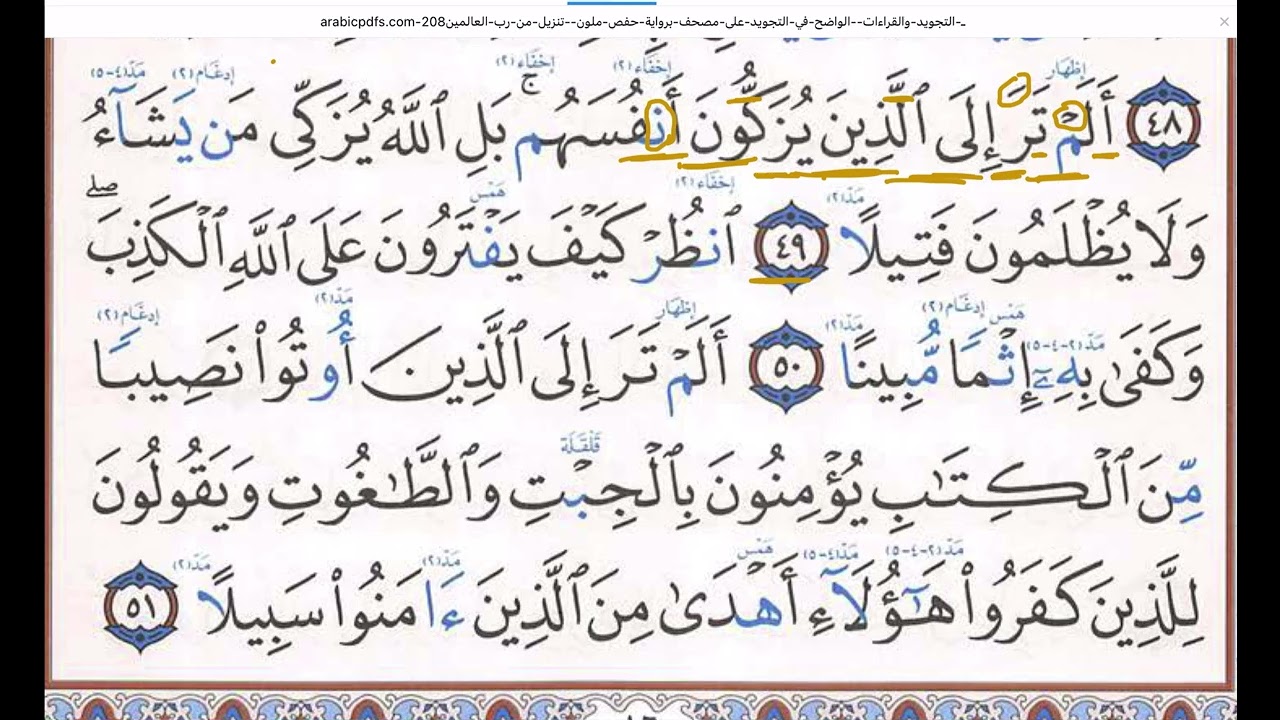 ـ-التجويد-والقراءات--الواضح-في-التجويد-على-مصحف-برواية-حفص-ملون--تنزيل-من-رب-العالمين208-arabicpdfs.com
إظهار إخفاء (٢) إخفاء (٢) إدغام (٢) مد (٤-٥)
٤٨ أَلَمْ تَرَ إِلَى ٱلَّذِينَ يُزَكُّونَ أَنفُسَهُمۚ بَلِ ٱللَّهُ يُزَكِّى مَن يَشَآءُ
مد (٢) إخفاء (٢) همس
وَلَا يُظْلَمُونَ فَتِيلًا ٤٩ ٱنظُرْ كَيْفَ يَفْتَرُونَ عَلَى ٱللَّهِ ٱلْكَذِبَۖ
مد (٢-٤-٥) همس إدغام (٢) مد (٢) إظهار مد (٢) إدغام (٢)
وَكَفَىٰ بِهِۦٓ إِثْمًا مُّبِينًا ٥٠ أَلَمْ تَرَ إِلَى ٱلَّذِينَ أُوتُوا۟ نَصِيبًا
قلقلة
مِّنَ ٱلْكِتَٰبِ يُؤْمِنُونَ بِٱلْجِبْتِ وَٱلطَّٰغُوتِ وَيَقُولُونَ
مد (٢-٤-٥) مد (٤-٥) همس مد (٢) مد (٢)
لِلَّذِينَ كَفَرُوا۟ هَٰٓؤُلَآءِ أَهْدَىٰ مِنَ ٱلَّذِينَ ءَامَنُوا۟ سَبِيلًا ٥١